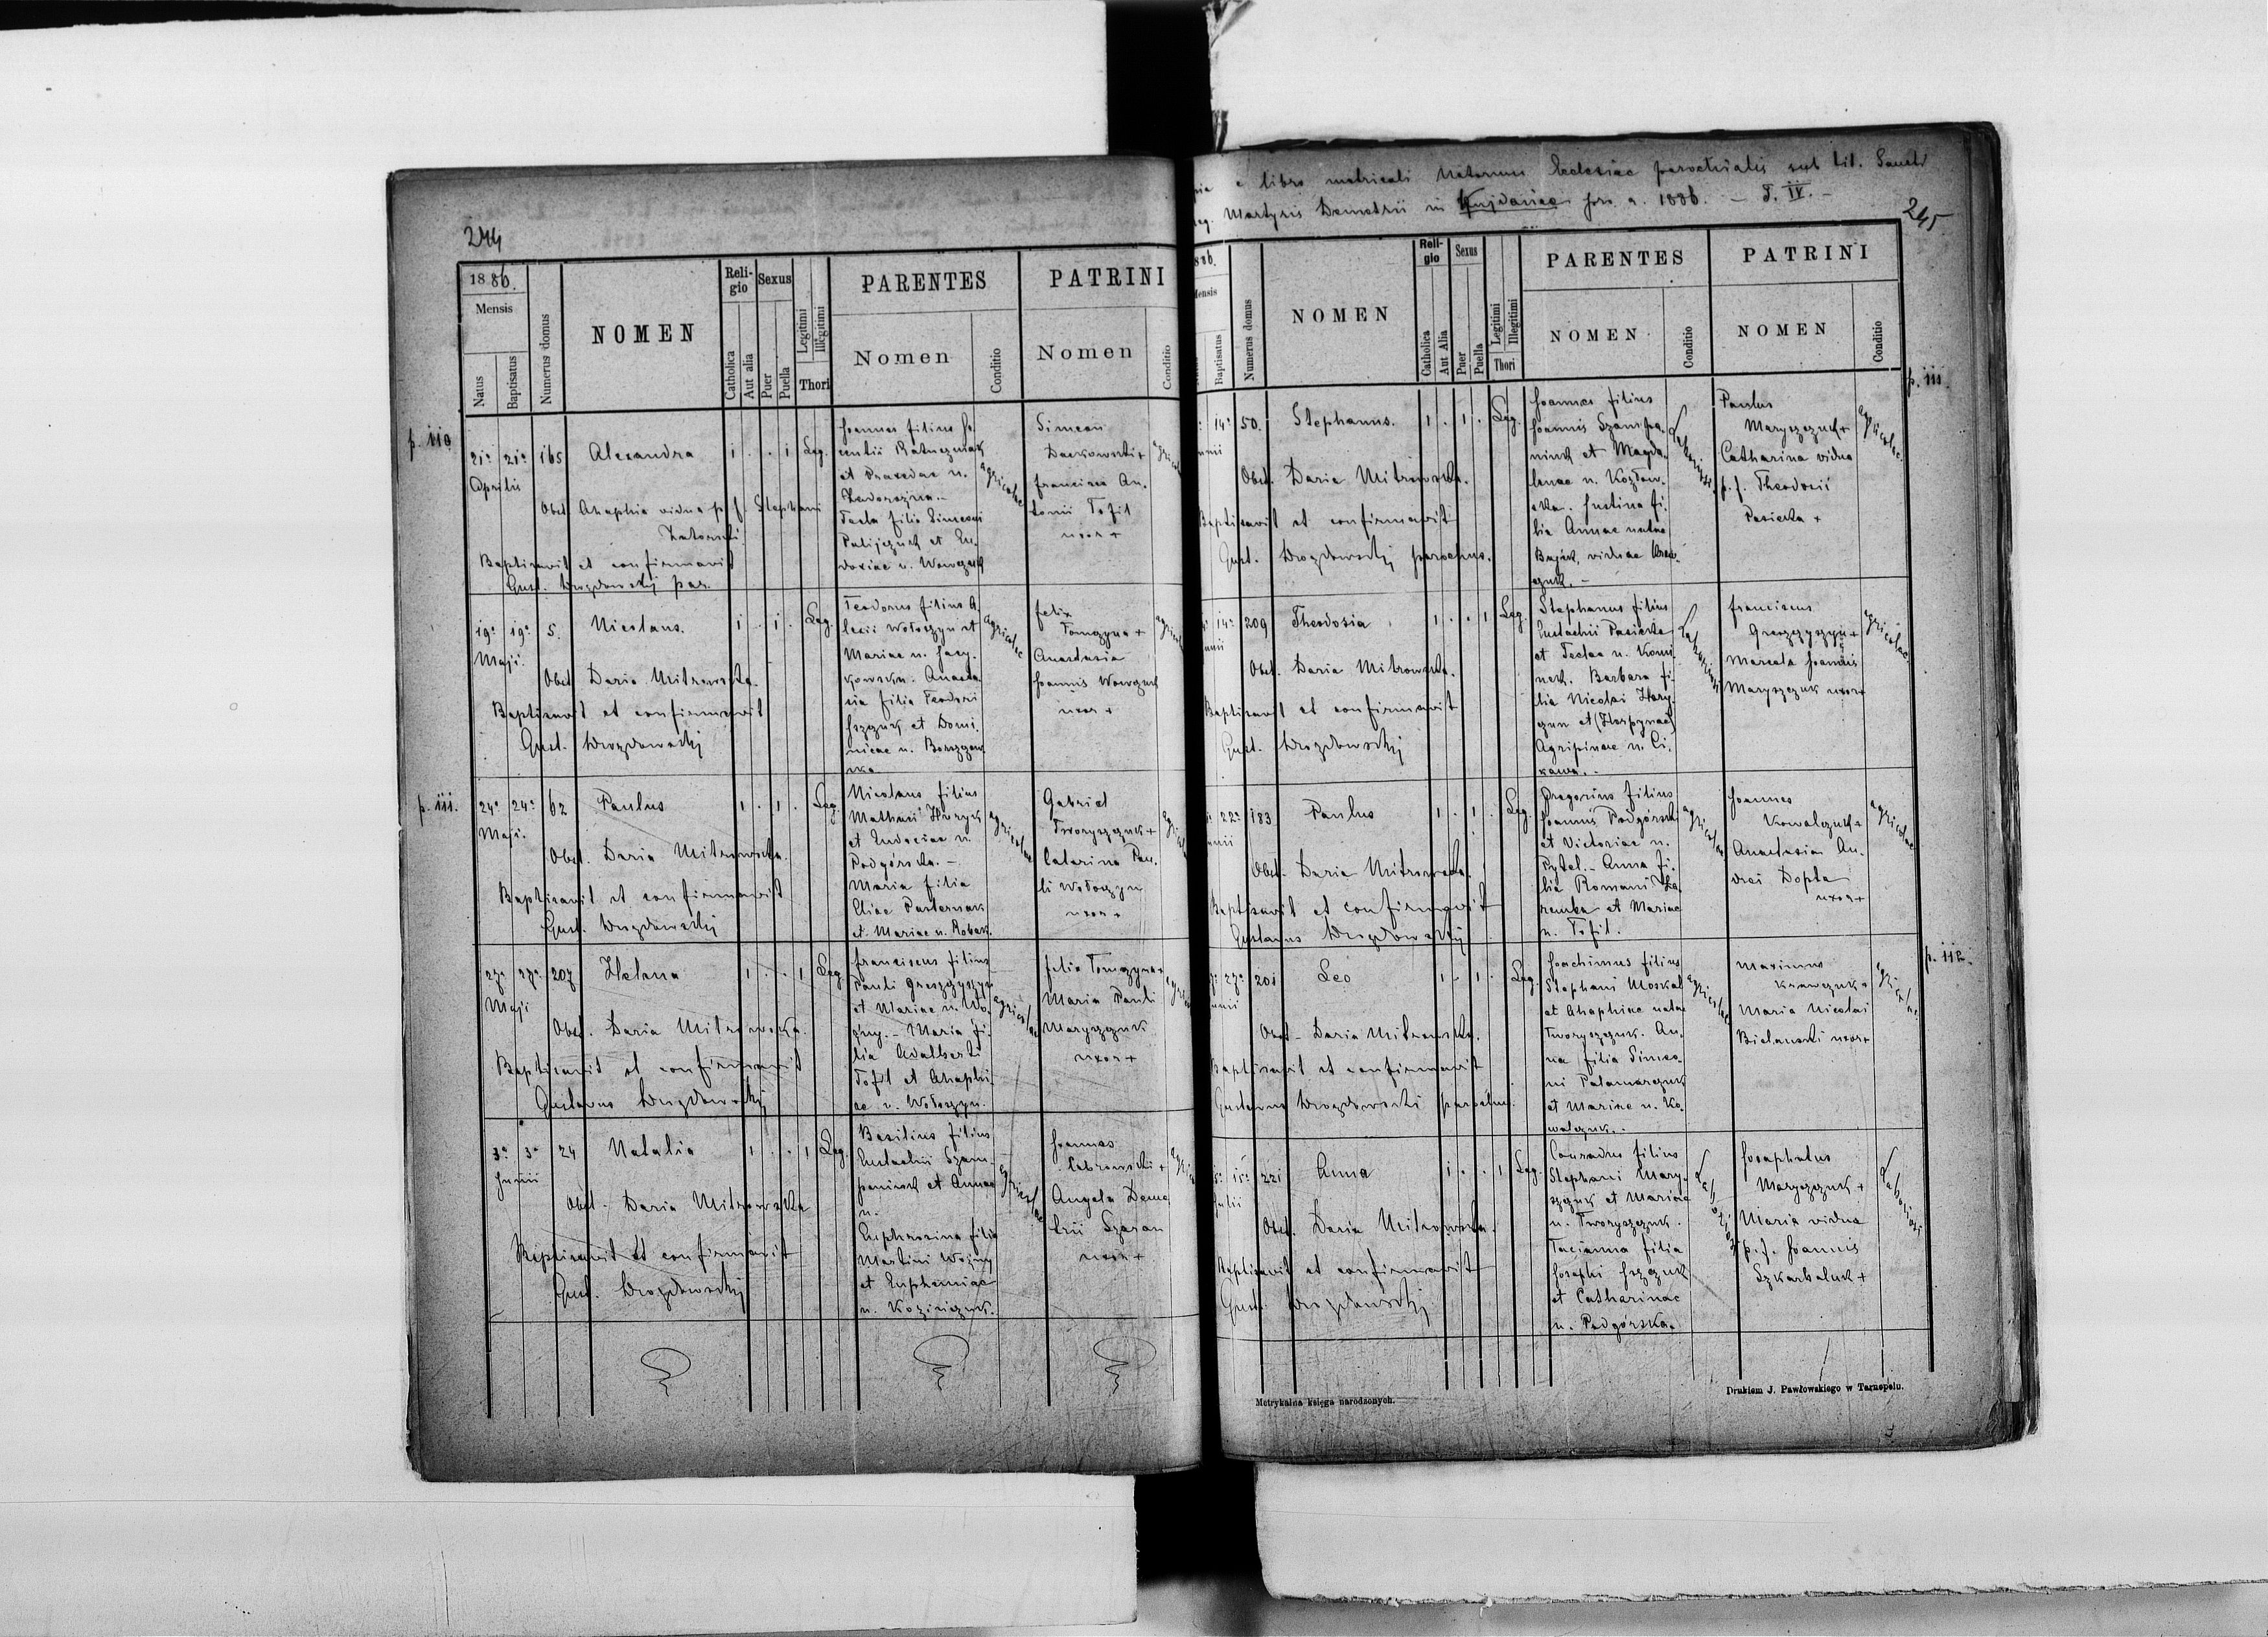 244
1886.
Mensis
Natus
Baptisatus
Numerus domus
NOMEN
Reli-
gio
Catholica
Aut alia
Sexus
Puer
Puella
Legitimi
Illegitimi
Thori
PARENTES
Nomen
Conditio
PATRINI
Nomen
Conditio
p. 110
21a 21a 165 Alexandra 1 . . 1 Leg.
Aprilis
Obst. Ahaphia vidua p. f. Stephani
Baptisavit et confirmavit
Gust. Drozdowskij par.
Joannes filius
et Praxedae n.
Tecla filia Simeoni
Palijczuk et Eu-
doxiae n. Wowczuk
agricolae
Simeon
Daczkowski +
Francisca An-
tonii Tofil
uxor +
19a 19a 5. Nicolaus. 1 . 1 . Leg.
Maji.
Obst. Daria Mitrowska.
Baptisavit et confirmavit
Gust. Drozdowskij
Teodorus filius A-
lexii Wołoszyn et
Mariae n. Jacy-
kowska. Anasta-
sia filia Teodori
Jszczuk et Domi-
nicae n.
agricolae
Felix
Tomczyna +
Anastasia
Joannis Wowczuk
uxor +
p. 111.
24a 24a 62 Paulus 1 . 1 . Leg.
Maji.
Obst. Daria Mitrowska.
Baptisavit et confirmavit
Gust. Drozdowskij
Nicolaus filius
et Eudociae n.
Podgórska. -
Maria filia
Eliae Pasternak
et Mariae n. Robak.
agricolae
Gabriel
Tworyszczuk +
Catarina Pau-
li Wołoszyn
uxor +
27a 27a 207 Helena 1 . . 1 Leg.
Maji
Obst. Daria Mitrowska.
Baptisavit et confirmavit
Gustavus Drozdowskij
Franciscus filius
Pauli Greszczyszyn
et Mariae n. Wo-
źny. - Maria fi-
lia Adalberti
Tofil et Ahaphi-
ae n. Wołoszyn.
agricolae
Felix Tomczyna +
Maria Pauli
Maryszczuk
uxor +
3a 3a 24 Natalia 1 . . 1 Leg.
Junii
Obst. Daria Mitrowska
Baptisavit et confirmavit
Gust. Drozdowskij
Basilius filius
Eustachii Szam-
paniuk et Annae
n.
Euphrosina filia
Martini Woźny
et Euphemiae
n. Koziniczuk.
agricolae
Joannes
Cebrowski +
Angela Deme-
trii Szaran
uxor +
e libro metricali Natorum Ecclesiae parochialis sub tit. Sancti
Martyris Demetrii in Kujdańce pro a. 1886. - T. IV. -
245
Mensis
Baptisatus
Numerus domus
NOMEN
Reli-
gio
Catholica
Aut Alia
Sexus
Puer
Puella
Legitimi
Illegitimi
Thori
PARENTES
NOMEN
Conditio
PATRINI
NOMEN
Conditio
p. 111.
14a 50. Stephanus. 1 . 1 . Leg.
Obst. Daria Mitrowska.
Baptisavit et confirmavit
Gust. Drozdowskij parochus.
Joannes filius
Joannis Szampa-
niuk et Magda-
lenae n. Kozłow-
ska. Justina fi-
lia Annae natae
Bujak, viduae Kraw-
czuk. -
Laboriosi
Paulus
Maryszczuk +
Catharina vidua
p. f. Theodosii
Pasieka +
agricolae
14a 209 Theodosia 1 . . 1 Leg.
Obst. Daria Mitrowska.
Baptisavit et confirmavit
Gust. Drozdowskij
Stephanus filius
Eustachii Pasieka
et Teclae n. Komi-
nek. Barbara fi-
lia Nicolai Hory-
czun et (Horpynae)
Agripinae n. Ci-
kawa. -
Laboriosi
Franciscus
Greszczyszyn +
Marcela Joannis
Maryszczuk uxor +
agricolae
22a 183 Paulus 1 . 1 . Leg.
Obst. Daria Mitrowska.
Baptisavit et confirmavit
Gustavus Drozdowskij
Gregorius filius
Joannis Podgórski
et Victoriae n.
Pytel. - Anna fi-
lia Romani Za-
remba et Mariae
n. Tofil.
agricolae
Joannes
Kowalczuk +
Anastasia An-
drei Dopta
uxor +
agricolae
p. 112.
27a 201 Leo 1 . 1 . Leg.
Obst. Daria Mitrowska.
Baptisavit et confirmavit
Gustavus Drozdowski parochus.
Joachimus filius
Stephani Moskal
et Ahaphiae natae
Tworyszczuk. An-
na filia Simeo-
ni Palamarczuk
et Mariae n. Ko-
walczuk. -
agricolae
Maximus
Krawczuk +
Maria Nicolai
Bielawski uxor +
agricolae
15a 221 Anna 1 . . 1 Leg.
Julii
Obst. Daria Mitrowska.
Baptisavit et confirmavit
Gust. Drozdowskij
Conradus filius
Stephani Mary-
szczuk et Mariae
n. Tworyszczuk.
Tacianna filia
Josephi Jszczuk
et Catharinae
n. Podgórska.
Laboriosi
Josaphatus
Maryszczuk +
Maria vidua
p. f. Joannis
Szkarbaluk +
Laboriosi
Metrykalna księga narodzonych.
Drukiem J. Pawłowskiego w Tarnopolu.